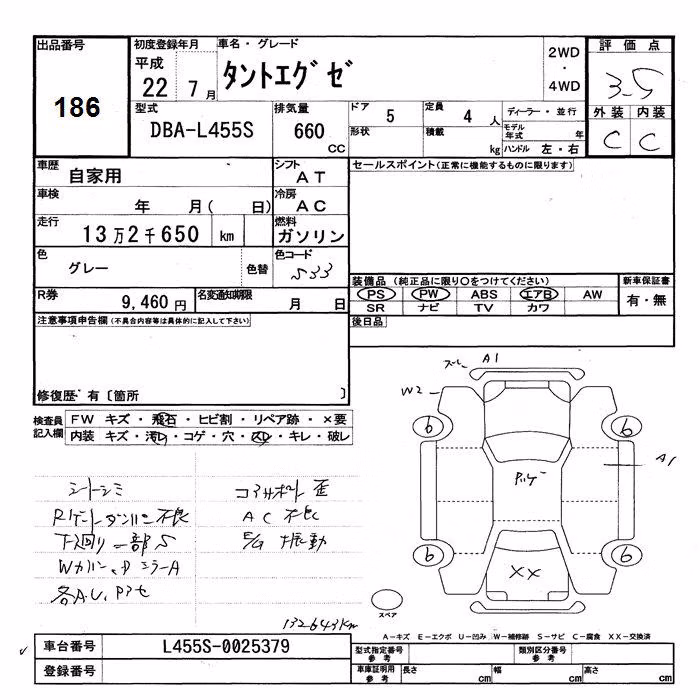 出品番号
186
初度登録年月
平成
22 7月
車名・グレード
タントエグゼ
2WD
・
4WD
評価点
3.5
外装 内装
C C
型式
DBA-L455S
排気量
660
CC
ドア 5
定員 4 人
ディーラー・並行
形状
積載 kg
モデル年式 年
ハンドル 左・右
車歴
自家用
シフト
AT
車検
年 月( 日)
冷房
AC
走行
13万2千650 km
燃料
ガソリン
色
グレー
色替
色コード
S33
R券
9,460円
名変通知期限
月 日
セールスポイント(正常に機能するものに限ります)
装備品 (純正品に限り○をつけてください)
新車保証書
PS PW ABS エアB AW
有・無
SR ナビ TV カワ
後日品
注意事項申告欄(不具合内容等は具体的に記入して下さい)
修復歴 有〔箇所 〕
検査員記入欄
FW キズ・飛石・ヒビ割・リペア跡・×要
内装 キズ・汚レ・コゲ・穴・スレ・キレ・破レ
シートシミ
コアサポート歪
Rゲートダンパー不良
AC不良
下廻り一部S
E/G振動
各A.U,Pアセ
132643km
ズレ A1
W2
6 6
A1
6 6
XX
スペア
A-キズ E-エクボ U-凹み W-補修跡 S-サビ C-腐食 XX-交換済
車台番号
L455S-0025379
登録番号
型式指定番号
参考
類別区分番号
参考
車庫証明用
参考
長さ cm
幅 cm
高さ cm